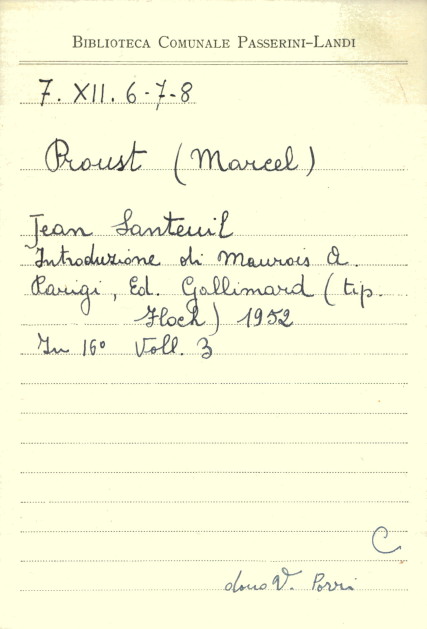 BIBLIOTECA COMUNALE PASSERINI-LANDI
7. XII. 6-7-8
Proust (Marcel)
Jean Santeuil
Introduzione di Maurois A.
Parigi, Ed. Gallimard (tip.
Floch) 1952
In 16° Voll. 3
C
dono V. Porri